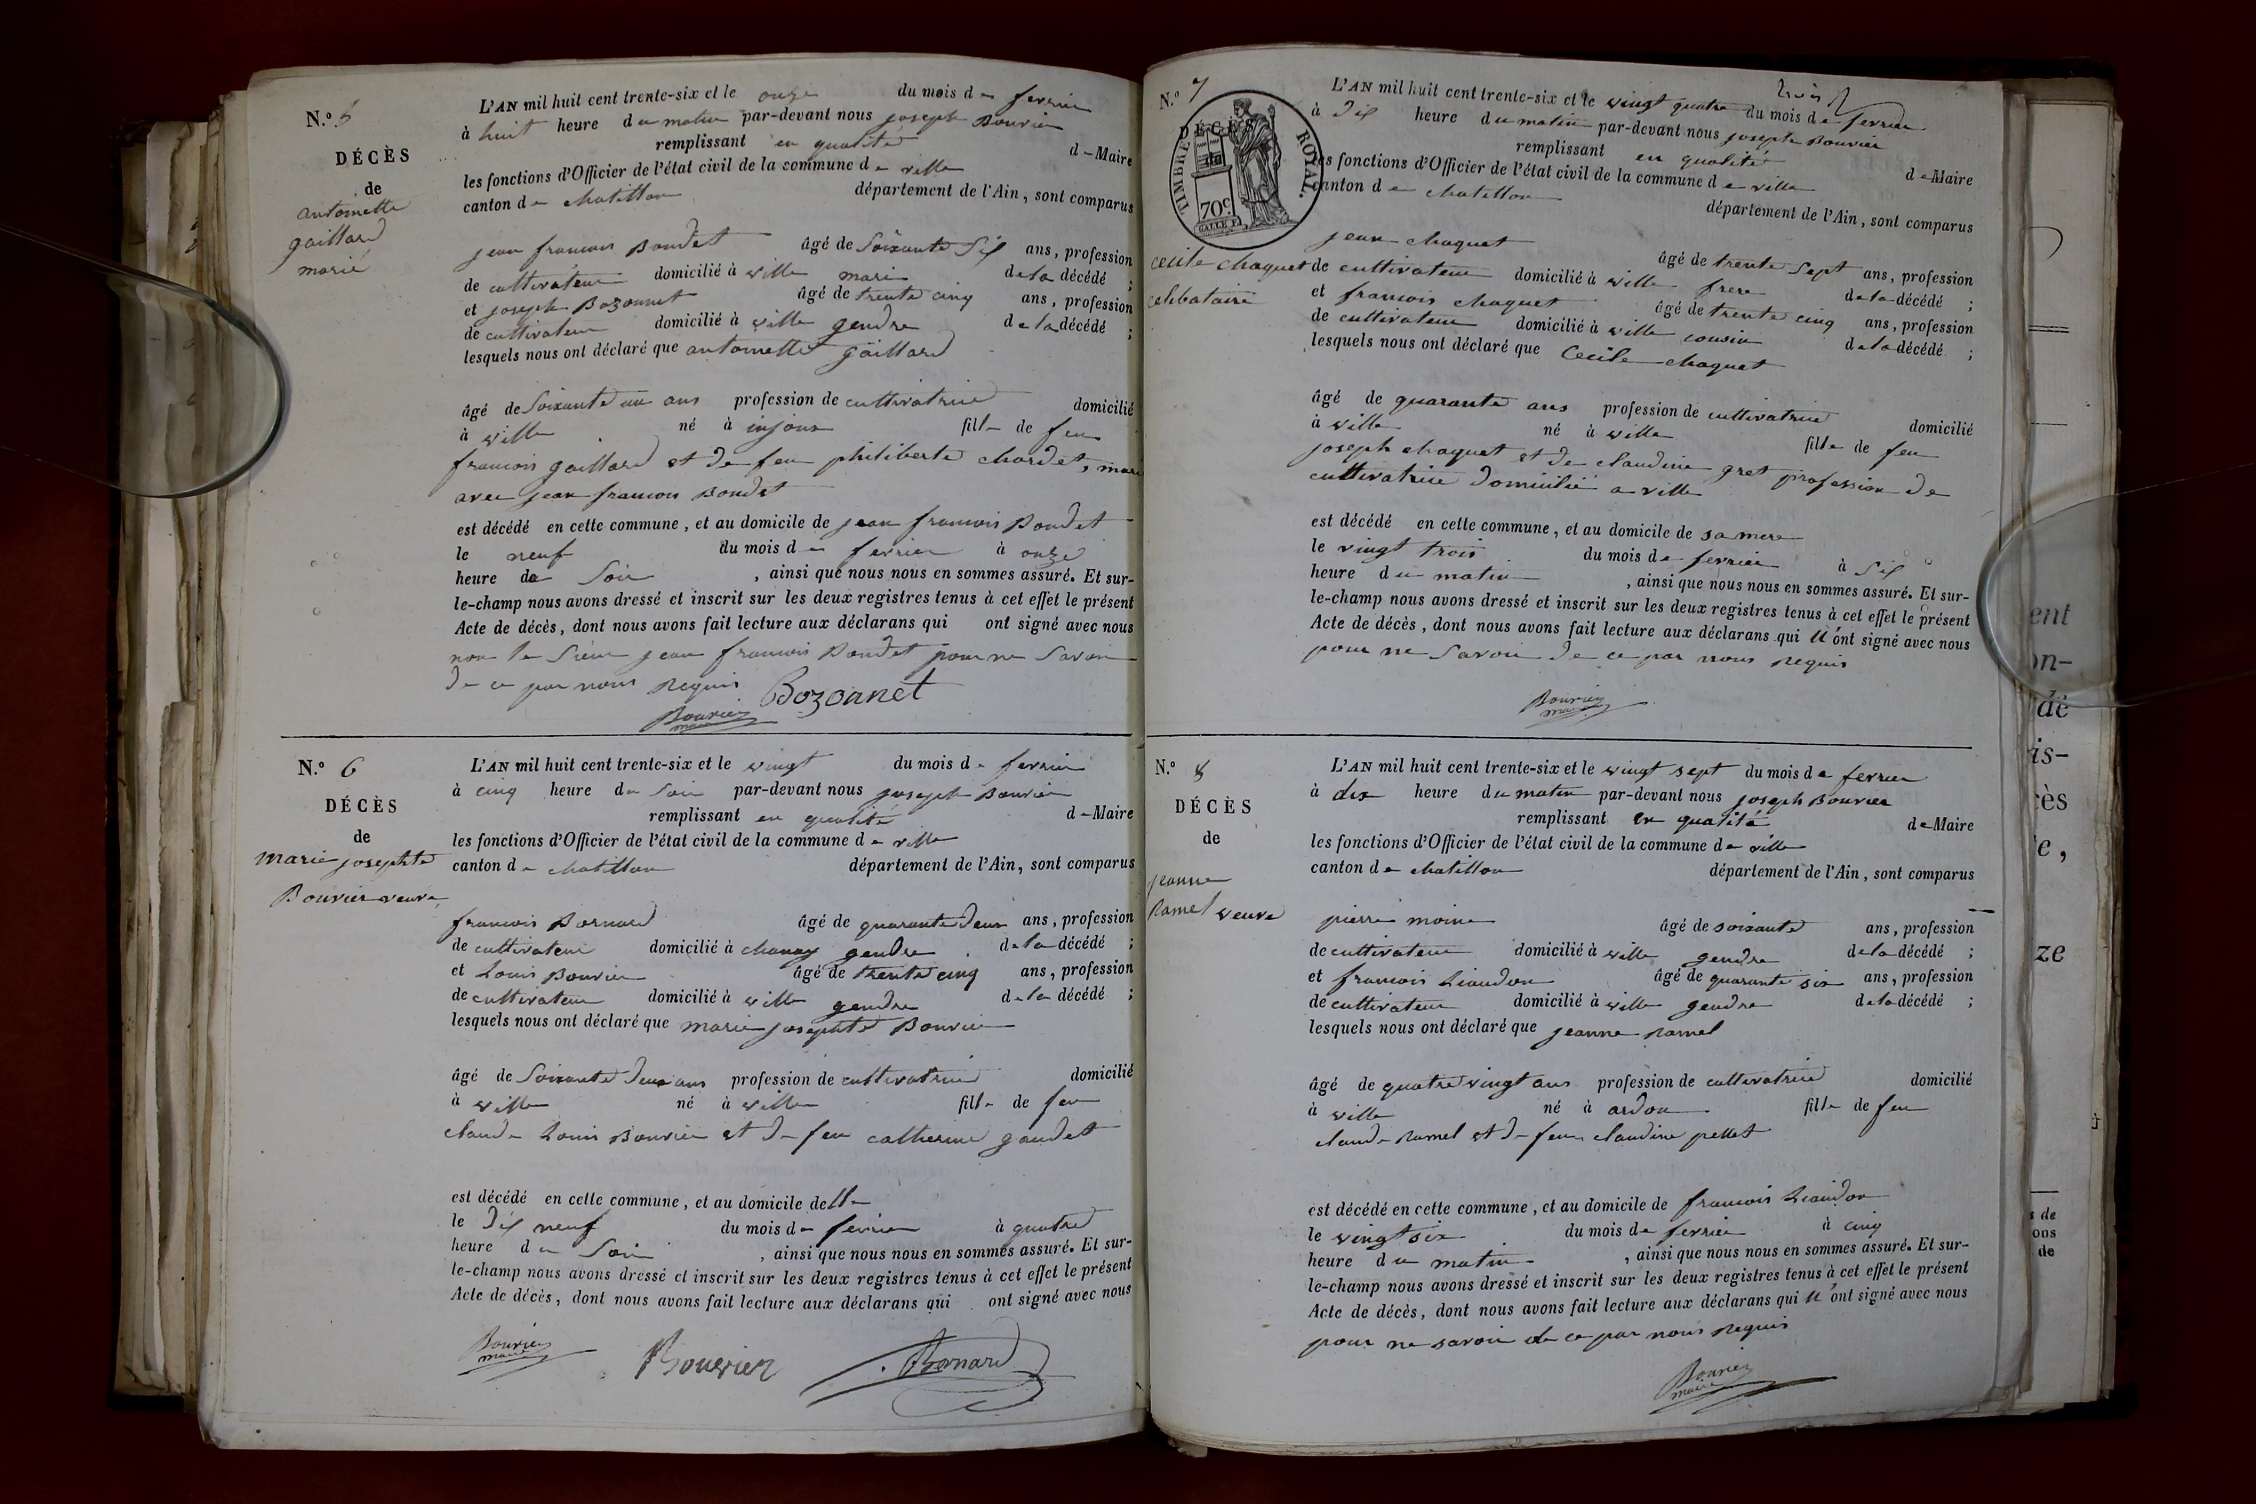 N.º 5
DÉCÈS
de
antoinette
gaillard
marié
L'AN mil huit cent trente-six et le onze du mois de fevrier
à huit heure du matin par-devant nous joseph Bouvier
remplissant en qualité de Maire
les fonctions d'Officier de l'état civil de la commune de ville
canton de chatillon département de l'Ain, sont comparus
jean francois Boudet âgé de Soixante Six ans, profession
de cultivateur domicilié à ville mari de la décédé ;
et joseph Bozonnet âgé de trente cinq ans, profession
de cultivateur domicilié à ville gendre de la décédé ;
lesquels nous ont déclaré que antoinette gaillard
âgé de Soixante un ans profession de cultivatrice domicilié
à ville né à injoux fille de feu
francois gaillard et de feu philiberte chardet, marié
avec jean francois Boudet
est décédé en cette commune, et au domicile de jean francois Boudet
le neuf du mois de fevrier à onze
heure de Soir , ainsi que nous nous en sommes assuré. Et sur-
le-champ nous avons dressé et inscrit sur les deux registres tenus à cet effet le présent
Acte de décès, dont nous avons fait lecture aux déclarans qui ont signé avec nous
non le Sieur jean francois Boudet pour ne Savoir
de ce par nous Requis Bozonnet
Bouvier
maire
N.º 6
DÉCÈS
de
marie josephte
Bouvier veuve
L'AN mil huit cent trente-six et le vingt du mois de fevrier
à cinq heure du Soir par-devant nous joseph Bouvier
remplissant en qualité de Maire
les fonctions d'Officier de l'état civil de la commune de ville
canton de chatillon département de l'Ain, sont comparus
francois Bornard âgé de quarante deux ans, profession
de cultivateur domicilié à chanay gendre de la décédé ;
et Louis Bouvier âgé de trente cinq ans, profession
de cultivateur domicilié à ville gendre de la décédé ;
lesquels nous ont déclaré que marie josephte Bouvier
âgé de Soixante deux ans profession de cultivatrice domicilié
à ville né à ville fille de feu
claude Louis Bouvier et de feu catherine gaudet
est décédé en cette commune, et au domicile delle
le dix neuf du mois de fevrier à quatre
heure du Soir , ainsi que nous nous en sommes assuré. Et sur-
le-champ nous avons dressé et inscrit sur les deux registres tenus à cet effet le présent
Acte de décès, dont nous avons fait lecture aux déclarans qui ont signé avec nous
Bouvier
maire
Bouvier Bornard
N.º 7
DÉCÈS
du
TIMBRE ROYAL.
70c.
GALLE F.
cecile chaquet
celibataire
trois
L'AN mil huit cent trente-six et le vingt quatre du mois de fevrier
à Dix heure du matin par-devant nous joseph Bouvier
remplissant en qualité de Maire
les fonctions d'Officier de l'état civil de la commune de ville
canton de chatillon département de l'Ain, sont comparus
jean chaquet âgé de trente Sept ans, profession
de cultivateur domicilié à ville frere de la décédé ;
et francois chaquet âgé de trente cinq ans, profession
de cultivateur domicilié à ville cousin de la décédé ;
lesquels nous ont déclaré que Cecile chaquet
âgé de quarante ans profession de cultivatrice domicilié
à ville né à ville fille de feu
joseph chaquet et de claudine gret profession de
cultivatrice domicilié a ville
est décédé en cette commune, et au domicile de sa mere
le vingt trois du mois de fevrier à Six
heure du matin , ainsi que nous nous en sommes assuré. Et sur-
le-champ nous avons dressé et inscrit sur les deux registres tenus à cet effet le présent
Acte de décès, dont nous avons fait lecture aux déclarans qui n'ont signé avec nous
pour ne Savoir de ce par nous Requis
Bouvier
maire
N.º 8
DÉCÈS
de
jeanne
Ramel veuve
L'AN mil huit cent trente-six et le vingt sept du mois de fevrier
à dix heure du matin par-devant nous joseph Bouvier
remplissant en qualité de Maire
les fonctions d'Officier de l'état civil de la commune de ville
canton de chatillon département de l'Ain, sont comparus
pierre moine âgé de soixante ans, profession
de cultivateur domicilié à ville gendre de la décédé ;
et francois Liaudon âgé de quarante six ans, profession
de cultivateur domicilié à ville gendre de la décédé ;
lesquels nous ont déclaré que jeanne Ramel
âgé de quatre vingt ans profession de cultivatrice domicilié
à ville né à ardon fille de feu
claude Ramel et de feu claudine pellet
est décédé en cette commune, et au domicile de francois Liaudon
le vingt six du mois de fevrier à cinq
heure du matin , ainsi que nous nous en sommes assuré. Et sur-
le-champ nous avons dressé et inscrit sur les deux registres tenus à cet effet le présent
Acte de décès, dont nous avons fait lecture aux déclarans qui n'ont signé avec nous
pour ne savoir de ce par nous Requis
Bouvier
maire
ent
on-
de
is-
ès
e,
ze
s de
ons
de